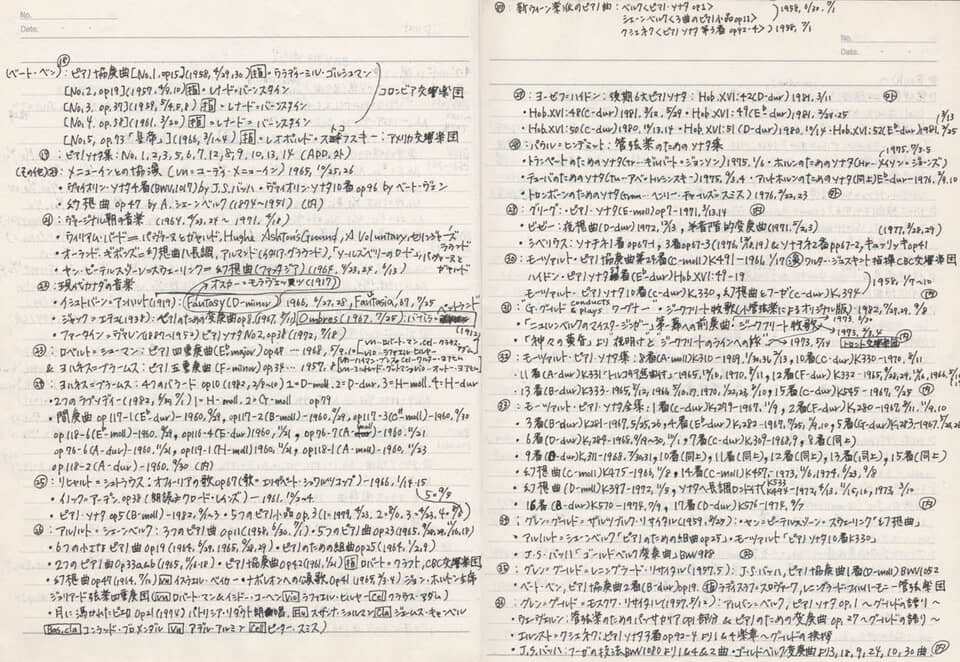 No.
Date.
⑱
(ベートーベン):ピアノ協奏曲[No.1,op15](1958,4/29,30)指=ウラディーミル・ゴルシュマン
[No.2,op19](1957,4/9,10)指=レナード=バーンスタイン
コロンビア交響楽団
[No.3,op.37](1959,5/4,5,8)指=レナード=バーンスタイン
[No.4,op.58](1961,3/20)指=レナード=バーンスタイン
[No.5,op.73「皇帝」](1966,3/1~4)指・レオポルド・ストコフスキー:アメリカ交響楽団
⑲:ピアノソナタ集:No.1,2,3,5,6,7,12,8,9,10,13,14 (ADD,2h)
(その他)⑳:メニューインとの協演(Vn=ユーディ・メニューイン)1965,10/25,26
・ヴァイオリン・ソナタ4番(BWV,1017)by J.S.バッハ・ヴァイオリン・ソナタ10番op96 by ベートーヴェン
・幻想曲op47 by A.シェーンベルク(1874~1951)
㉑:ヴァージナル期の音楽
・ウィリアム・バード=パヴァーヌとガヤルド,Hughe Ashton's Ground, A Voluntary,セリンジャーズラウンド
・オーランド・ギボンズ=幻想曲ハ長調,アルマンド(イタリア・グラウンド),「ソールズベリーのロード」パヴァーヌとガヤルド
・ヤン・ピーテルスゾーン=スウェーリンク=幻想曲(ファンタジア)
㉒:現代カナダの音楽
オスカー・モラヴェッツ(1917)
・イシュトバン・アンハルト(1919):Fantasia,67,
Fantasy(D-minor) 1966,4/27,28,
・ジャック=エテュ(1938):ピアノのための変奏曲op8,1967,
Ombres(1967,7/25):バーバラ=ペントランド(1912)
・フォーティン=ヴァレン(1887-1952)ピアノソナタNo2,op38(1972,7/18)
㉓:ロベルト=シューマン:ピアノ四重奏曲(E♭major)op48 … 1968,
& ヨハネス=ブラームス:ピアノ五重奏曲(F-minor)op34 … 1957,
㉔:ヨハネス=ブラームス:4つのバラード op10(1982,2/8~10) 1=D-moll,2=D-dur,3=H-moll,4=H-dur
・2つのラプソディー(1982,) 1=H-moll, 2=G-moll op79
・間奏曲op117-1(E♭-dur)-1960,9/29,op117-2(B-moll)-1960,9/29,op117-3(C#-moll)-1960,9/30
op118-6(E♭-moll)-1960,9/29,op116-4(E-dur)1960,11/21,op76-7(A-moll)-1960,11/21
op76-6(A-dur)-1960,11/21,op119-1(H-moll)1960,11/21,op118-1(A-moll)-1960,11/23
op118-2(A-dur)-1960,9/30
㉕:リヒャルト=シュトラウス:オフィーリアの歌op67(歌=エリザベート・シュワルツコップ)-1966,1/14~15
・イノック=アーデン,op38(朗読=クロード・レインズ)-1961,10/2~4
・ピアノ・ソナタop5(B-moll)-1982,9/1~3・5つのピアノ小品op,3
㉖:アルノルト=シェーンベルク:3つのピアノ曲op11(1958,6/30,7/1)・5つのピアノ曲op23
・6つの小さなピアノ曲op19(1964,6/29,1965,9/28,29)・ピアノのための組曲op25(1964,)
・2つのピアノ曲op33a,b(1965,)・ピアノ協奏曲op42(1961,1/21)指ロバート=クラフト,CBC交響楽団
・幻想曲op47(1964,7/10)Vnイスラエル・ベイカー・ナポレオンへの頌歌op41(1965,2/4)ジョン・ホルトン
ジュリアード弦楽四重奏団(Vnロバート=マン&イシドー・コーヘンVaラファエル・ヒルヤーCelクラウス・アダム)
・月に憑かれたピエロop21(1974)パトリシア・リダウトFl=スザンナ・シュルマンClaジェームス・キャンベル
Bas,claコンラッド・ブロメンダルVnアデル・アルミンCelピーター・スミス)
㉗ 新ウィーン楽派のピアノ曲:ベルク<ピアノ・ソナタop1>
シェーンベルク<3曲のピアノ小品op11>
クシェネク<ピアノソナタ第3番op92-4>
1958, 7/1
No.
Date.
ヨーゼフ=ハイドン:後期6大ピアノソナタ:Hob.XVI:42(D-dur)1981,3/11
・Hob.XVI:48(C-dur)1981,3/12,5/29・Hob.XVI:49(E♭-dur)1981,2/24,25
・Hob.XVI:50(C-dur)1980,10/13,14・Hob.XVI:51(D-dur)1980,10/14・Hob.XVI:52(E♭-dur)1981,
パウル=ヒンデミット:管弦楽のためのソナタ集
・トランペットのためのソナタ(Tr=ギルバート・ジョンソン)1975,1/6・ホルンのためのソナタ(Hr=メイソン=ジョーンズ)
・テューバのためのソナタ(Tu=アベ=トルシンスキー)1975,9/4・アルトホルンのためのソナタ(同上)E♭-dur-1976,9/9,10
・トロンボーンのためのソナタ(Trom=ヘンリー・チャールズ=スミス)1976,2/22,23
グリーグ・ピアノ・ソナタ(E-moll)op7-1971,3/13,14
・ビゼー:夜想曲(D-dur)1972,12/13,半音階的変奏曲(1971,5/2,3)
・シベリウス:ソナチネ1番op67-1,3番op67-3(1976,12/18,19)&ソナチネ2番op67-2,キュリッキop41
㉚モーツァルト=ピアノ協奏曲第24番(C-moll)K491-1966,1/17指ワルター・ジュスキント指揮CBC交響楽団
ハイドン=ピアノソナタ(E♭-dur)Hob.XVI:49-19
モーツァルト=ピアノソナタ10番(C-dur)K,330,幻想曲とフーガ(C-dur)K,394
1958,1/7~10
㉛:G.グールド conducts & plays ワーグナー=ジークフリート牧歌(小管弦楽によるオリジナル版)1982,7/27,29,9/8
・「ニュルンベルクのマイスタージンガー」第一幕への前奏曲・ジークフリート牧歌
・「神々の黄昏」より夜明けとジークフリートのラインへの旅
1973,5/14
トロント交響楽団
㉜:モーツァルト・ピアノソナタ集:8番(A-moll)K310-1969,1/30,31,2/13,10番(C-dur)K330-1970,8/11
・11番(A-dur)K331「トルコ行進曲付」-1965,12/10,1970,8/11,12番(F-dur)K332-1965,
・13番(B-dur)K333-1965,・15番(C-dur)K545-1967,7/25
㉝:モーツァルト・ピアノソナタ全集:1番(C-dur)K,279-1967,11/9,2番(F-dur)K,280-1967,
・3番(B-dur)K281-1967,5/25,26,4番(E♭-dur)K,282-1967,,5番(G-dur)K,283-1967,
・6番(D-dur)K,284-1968,,7番(C-dur)K,309-1968,9,8番(同上)
・9番(D-dur)K,311-1968,7/30,31,10番(同上),11番(同上),12番(同上),13番(同上),15番(同上)
・幻想曲(C-moll)K475-1966,,14番(C-moll)K457-1973,
・幻想曲(D-moll)K397-1972,11/5,ソナタヘ長調ロンド付K533 K494-1972,
・16番(B-dur)K570-1974,9/7,17番(D-dur)K576-1974,9/7
㉞:グレン=グールド=ザルツブルク・リサイタル(1959,8/25):ヤン=ピーテルスゾーン・スウェーリンク「幻想曲」
アルノルト=シェーンベルク「ピアノのための組曲op25」,モーツァルト「ピアノソナタ10番K330」
J.S.バッハ「ゴールドベルク変奏曲」BWV988
㉟:グレン=グールド=レニングラード・リサイタル(1957,):J.S.バッハ,ピアノ協奏曲1番(D-moll)BWV1052
ベートーベン,ピアノ協奏曲2番(B-dur)op19.指ラディスラフ=スロヴァーク,レニングラード・フィルハーモニー管弦楽団
㊱:グレン=グールド=モスクワ・リサイタル(1957,5/12):アルバン=ベルク,ピアノソナタop,1 ~グールドの語り~
・ウェーベルン:管弦楽のためのパッサカリアop1部分&ピアノのための変奏曲op,27 ~グールドの語り~
・エルンスト=クシェネク:ピアノソナタ3番op92-4より1&4楽章~グールドの挨拶
・J.S.バッハ:フーガの技法BWV1080より1&4&2曲・ゴールドベルク変奏曲より3,18,9,24,10,30曲